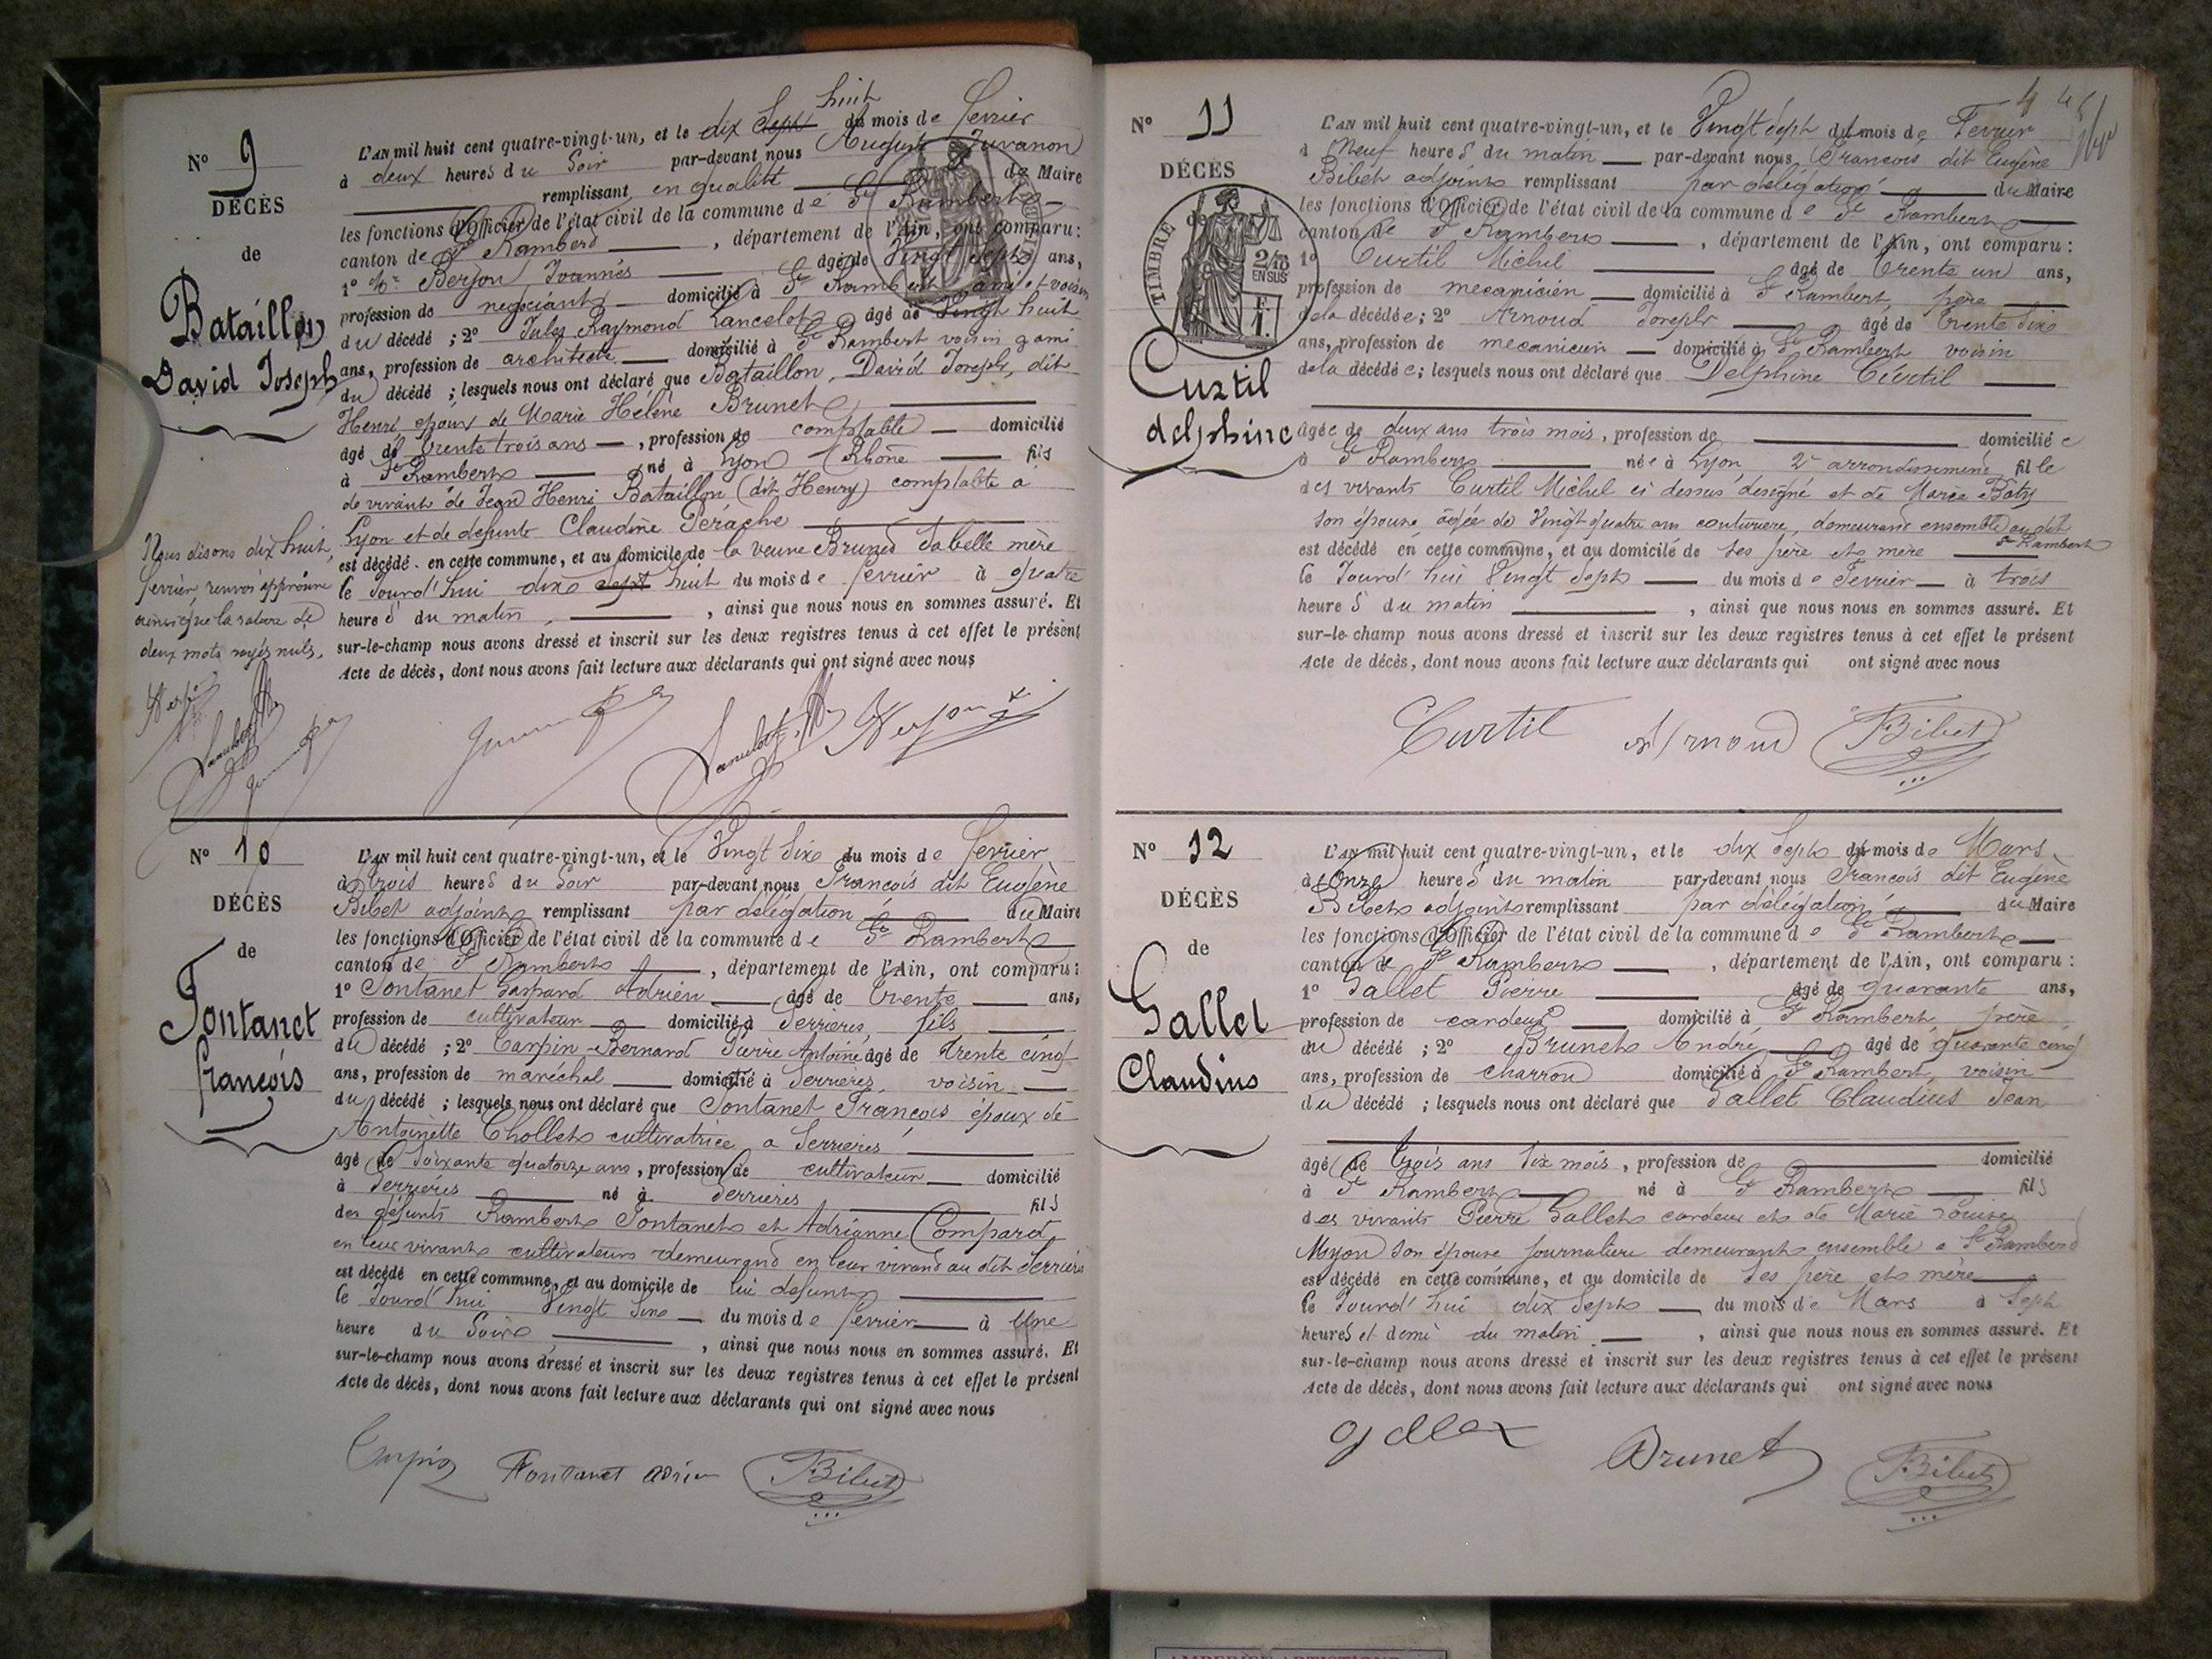 N° 9
DÉCÈS
de
Bataillon
David Joseph
L'AN mil huit cent quatre-vingt-un, et le dix sept huit du mois de février
à deux heures du soir par-devant nous Auguste Juvanon
remplissant en qualité de Maire
les fonctions d'Officier de l'état civil de la commune de St Rambert
canton de St Rambert, département de l'Ain, ont comparu :
1° Mr Berjon Joannès âgé de vingt sept ans,
profession de négociant domicilié à St Rambert ami et voisin
du décédé ; 2° Jules Raymond Lancelot âgé de vingt huit
ans, profession de architecte domicilié à St Rambert voisin & ami
du décédé ; lesquels nous ont déclaré que Bataillon, David Joseph, dit
Henri époux de Marie Hélène Brunet
âgé de trente trois ans, profession de comptable domicilié
à St Rambert né à Lyon (Rhône fils
de vivant de Jean Henri Bataillon (dit Henry) comptable a
Lyon et de defunte Claudine Perache
est décédé en cette commune, et au domicile de la veuve Brunet sa belle mère
le Jourd'hui dix sept huit du mois de février à quatre
heures du matin, ainsi que nous nous en sommes assuré. Et
sur-le-champ nous avons dressé et inscrit sur les deux registres tenus à cet effet le présent
Acte de décès, dont nous avons fait lecture aux déclarants qui ont signé avec nous
Nous disons dix huit
février renvoi approuvé
ainsi que la rature de
deux mots rayés nuls.
N° 10
DÉCÈS
de
Fontanet
françois
L'AN mil huit cent quatre-vingt-un, et le Vingt Six du mois de février
à trois heures du soir par-devant nous François dit Eugène
Bibet adjoint remplissant par délégation du Maire
les fonctions d'Officier de l'état civil de la commune de St Rambert
canton de St Rambert, département de l'Ain, ont comparu :
1° Fontanet Gaspard Adrien âgé de trente ans,
profession de cultivateur domicilié à Serrières, fils
du décédé ; 2° Carpin-Bernard Pierre Antoine âgé de trente cinq
ans, profession de maréchal domicilié à Serrières, voisin
du décédé ; lesquels nous ont déclaré que Fontanet François époux de
Antoinette Chollet cultivatrice a Serrières
âgé de soixante quatorze ans, profession de cultivateur domicilié
à Serrières né à Serrières fils
des défunts Rambert Fontanet et Adrianne Comparat
en leur vivants cultivateurs demeurand en leur vivand au dit Serrières
est décédé en cette commune, et au domicile de lui defunt
le Jourd'hui Vingt Six du mois de février à Une
heure du Soir, ainsi que nous nous en sommes assuré. Et
sur-le-champ nous avons dressé et inscrit sur les deux registres tenus à cet effet le présent
Acte de décès, dont nous avons fait lecture aux déclarants qui ont signé avec nous
Carpin Fontanet Adrien Bibet
N° 11
DÉCÈS
de
TIMBRE
2/10
EN SUS
Curtil
delphine
L'AN mil huit cent quatre-vingt-un, et le Vingt Sept du mois de Fevrier
à Neuf heures du matin par-devant nous François dit Eugène
Bibet adjoint remplissant par délégation du Maire
les fonctions d'Officier de l'état civil de la commune de St Rambert
canton de St Rambert, département de l'Ain, ont comparu :
1° Curtil Michel âgé de trente un ans,
profession de mecanicien domicilié à St Rambert, père
de la décédée ; 2° Arnoud Joseph âgé de trente six
ans, profession de mecanicien domicilié à St Rambert voisin
de la décédée ; lesquels nous ont déclaré que Delphine Curtil
âgée de deux ans trois mois, profession de domiciliée
à St Rambert née à Lyon 2e arrondissement fille
des vivants Curtil Michel ci dessus désigné et de Marie
son épouse âgée de Vingt quatre ans couturière, demeurand ensemble au dit
St Rambert
est décédé en cette commune, et au domicile de ses père et mère
le Jourd'hui Vingt Sept du mois de Fevrier à trois
heures du matin, ainsi que nous nous en sommes assuré. Et
sur-le-champ nous avons dressé et inscrit sur les deux registres tenus à cet effet le présent
Acte de décès, dont nous avons fait lecture aux déclarants qui ont signé avec nous
Curtil Arnoud Bibet
N° 12
DÉCÈS
de
Gallet
Claudius
L'AN mil huit cent quatre-vingt-un, et le dix Sept du mois de Mars
à Onze heures du matin par-devant nous François dit Eugène
Bibet adjoint remplissant par délégation du Maire
les fonctions d'Officier de l'état civil de la commune de St Rambert
canton de St Rambert, département de l'Ain, ont comparu :
1° Gallet Pierre âgé de quarante ans,
profession de cardeur domicilié à St Rambert, père
du décédé ; 2° Brunet André âgé de quarante cinq
ans, profession de charron domicilié à St Rambert, voisin
du décédé ; lesquels nous ont déclaré que Gallet Claudius Jean
âgé de trois ans six mois, profession de domicilié
à St Rambert né à St Rambert fils
des vivants Pierre Gallet cardeur et de Marie Louise
Moyon son épouse journalière demeurant ensemble a St Rambert
est décédé en cette commune, et au domicile de ses père et mère
le Jourd'hui dix Sept du mois de Mars à Sept
heures et demi du matin, ainsi que nous nous en sommes assuré. Et
sur-le-champ nous avons dressé et inscrit sur les deux registres tenus à cet effet le présent
Acte de décès, dont nous avons fait lecture aux déclarants qui ont signé avec nous
Brunet Bibet